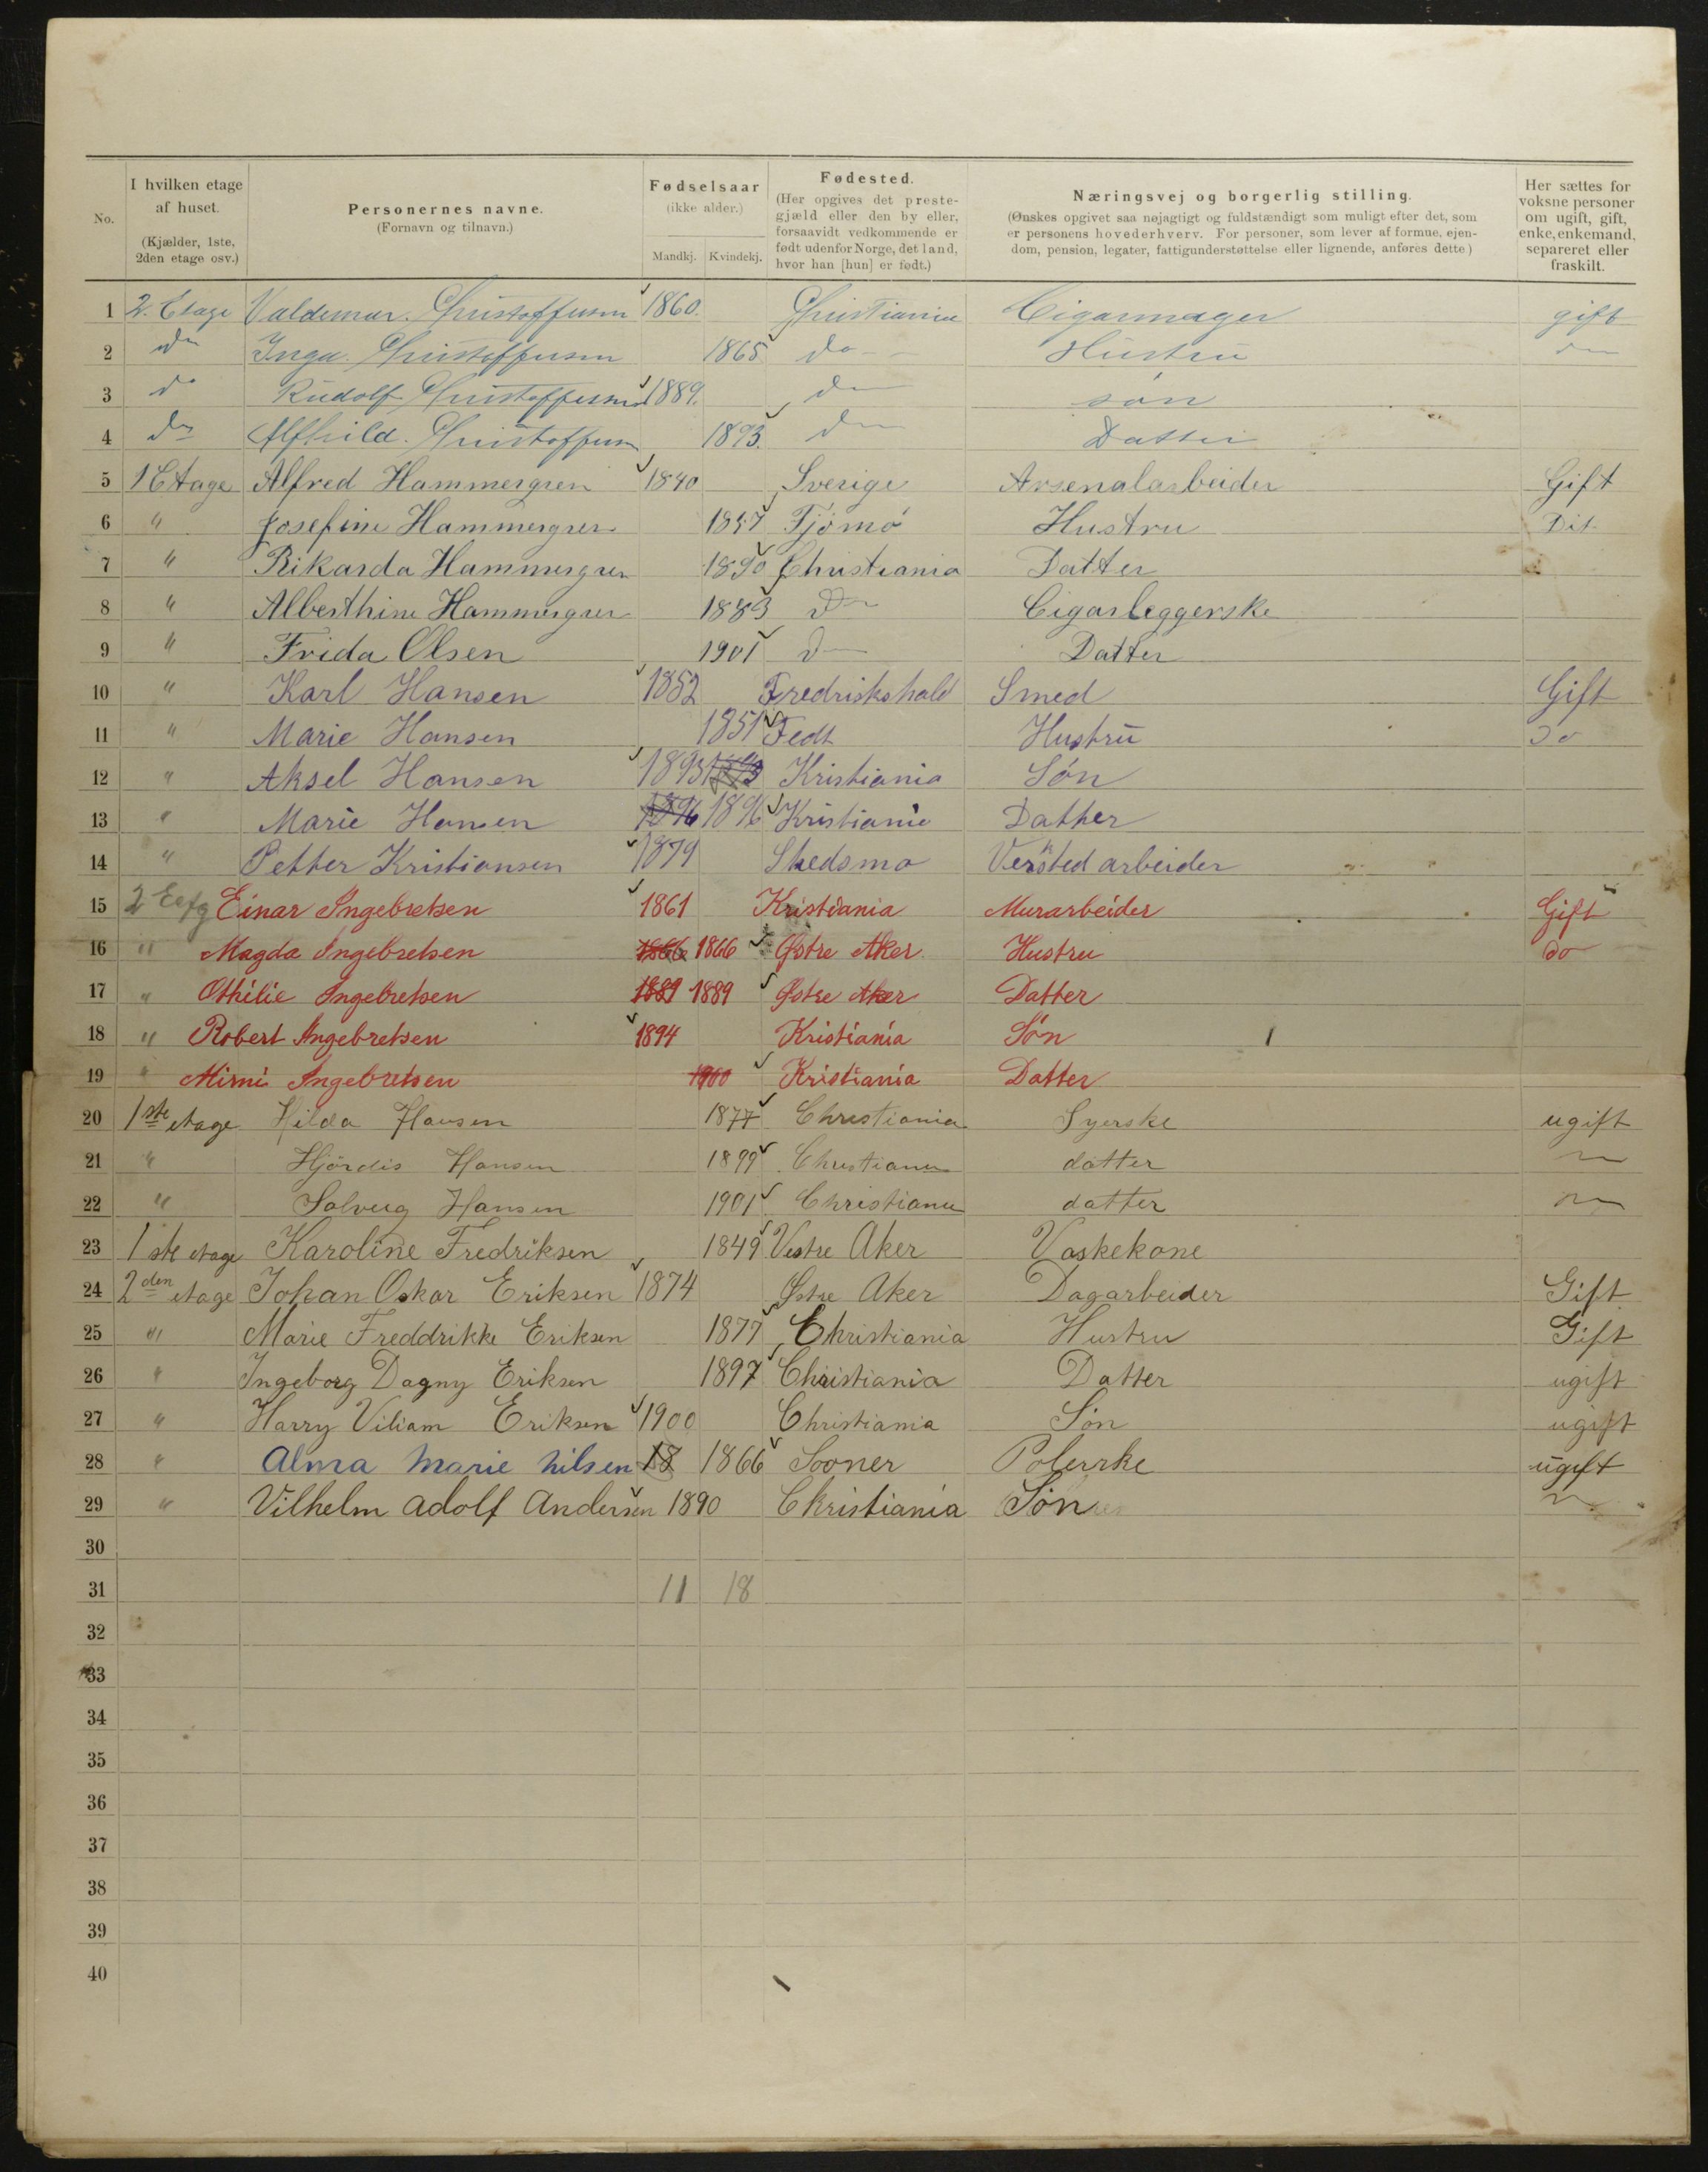 No. I hvilken etage af huset. (Kjælder, 1ste, 2den etage osv.) Personernes navne. (Fornavn og tilnavn.) Fødselsaar (ikke alder.) Mandkj. Kvindekj. Fødested. (Her opgives det prestegjæld eller den by eller, forsaavidt vedkommende er født udenfor Norge, det land, hvor han [hun] er født.) Næringsvej og borgerlig stilling. (Ønskes opgivet saa nøjagtigt og fuldstændigt som muligt efter det, som er personens hovederhverv. For personer, som lever af formue, ejendom, pension, legater, fattigunderstøttelse eller lignende, anføres dette) Her sættes for voksne personer om ugift, gift, enke, enkemand, separeret eller fraskilt.
1 2. Etage Valdemar. Christoffersen 1860. Christiania Cigarmager gift
2 do Inga. Christoffersen 1865 do Hustru do
3 do Rudolf Christoffersen 1889. do søn
4 do Alfhild. Christoffersen 1893. do Datter
5 1 Etage Alfred Hammergren 1840 Sverige Arsenalarbeider Gift
6 " Josefine Hammergren 1857 Tjömö Hustru Dit
7 " Rikarda Hammergren 1890 Christiania Datter
8 " Alberthine Hammergren 1883 Do Cigarleggerske
9 " Frida Olsen 1901 Do Datter
10 " Karl Hansen 1852 Fredrikshald Smed Gift
11 " Marie Hansen 1851 Fedt Hustru Do
12 " Aksel Hansen 1893 1893 Kristiania Sön
13 " Marie Hansen 1896 1896 Kristiania Datther
14 " Petter Kristiansen 1879 Skedsmo Versted arbeider
15 2 Etg Einar Ingebretsen 1861 Kristiania Murarbeider Gift
16 " Magda Ingebretsen 1866 1866 Østre Aker Hustru do
17 " Othilie Ingebretsen 1889 1889 Østre Aker Datter
18 " Robert Ingebretsen 1894 Kristiania Søn
19 " Mimi Ingebretsen 1900 Kristiania Datter
20 1ste etage Hilda Hansen 1877 Christiania Syerske ugift
21 " Hjördis Hansen 1899 Christiania datter "
22 " Solveig Hansen 1901 Christiania datter "
23 1 ste etage Karoline Fredriksen 1849 Vestre Aker Vaskekone
24 2den etage Johan Oskar Eriksen 1874 Østre Aker Dagarbeider Gift
25 " Marie Freddrikke Eriksen 1877 Christiania Hustru Gift
26 " Ingeborg Dagny Eriksen 1897 Christiania Datter ugift
27 " Harry Viliam Eriksen 1900 Christiania Sön ugift
28 " Alma Marie Nilsen 18 1866 Sooner Polerske ugift
29 " Vilhelm Adolf Andersen 1890 Christiania Søn "
30
31 11 18
32
33
34
35
36
37
38
39
40